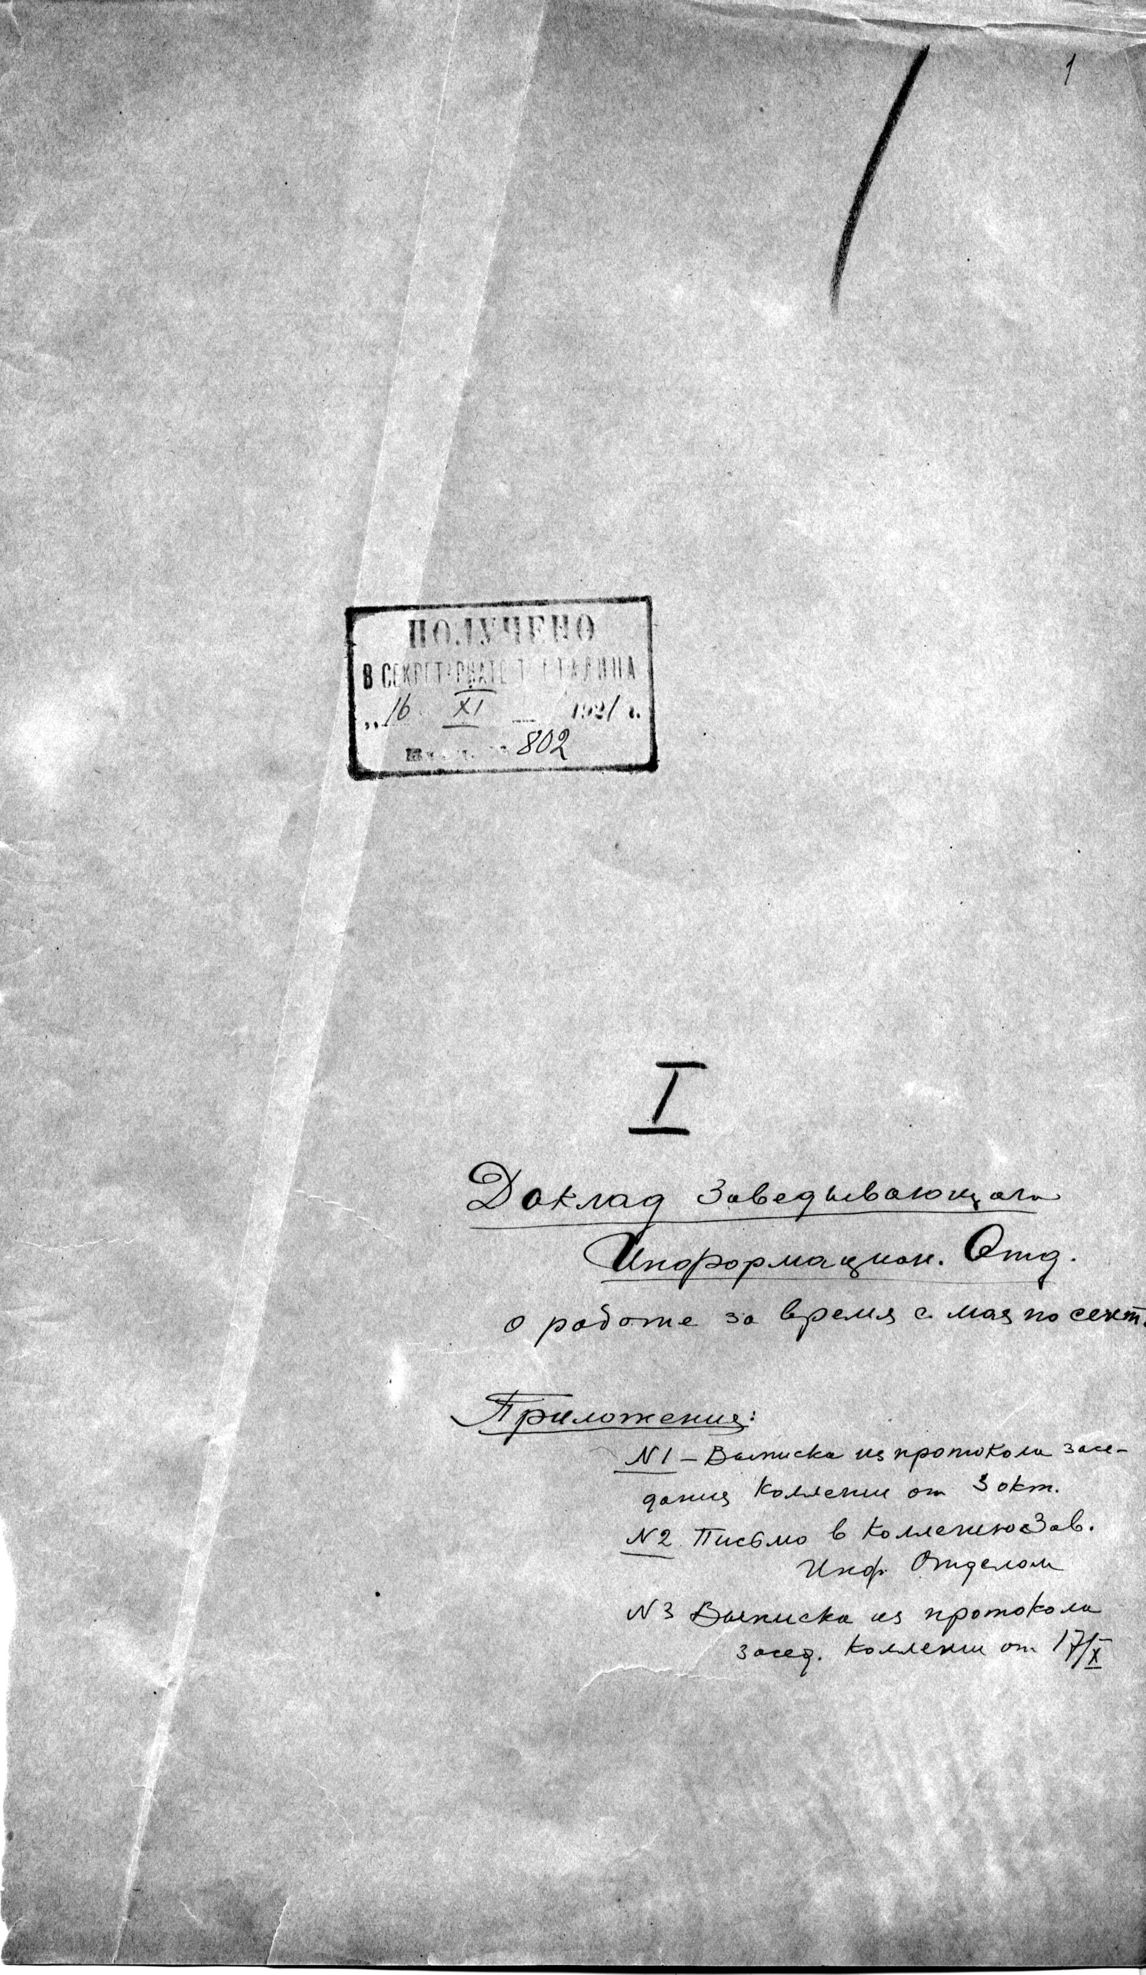 1
ПОЛУЧЕНО
В СЕКРЕТАРИАТЕ Т. СТАЛИНА
„16 XI 1921 г.
802
I
Доклад Заведывающаго
Информацион. Отд.
о работе за время с мая по сент.
Приложения:
N1 – Выписка из протокола засе-
дания Коллегии от 3 окт.
N2 Письмо в Коллегию Зав.
Инф. Отделом
N3 Выписка из протокола
засед. Коллегии от 17/X